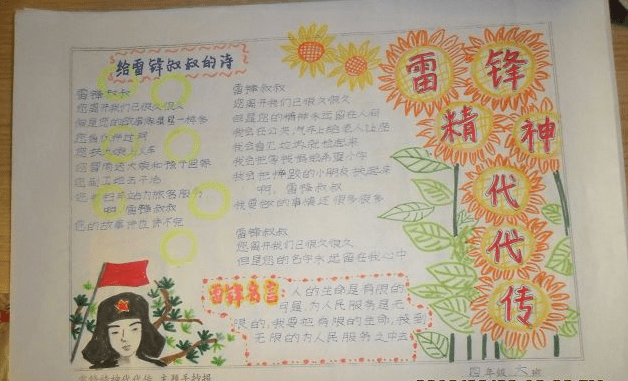 给雷锋叔叔的诗
雷锋叔叔
您离开我们已很久很久
但是您的故事像星星一样多
您扶大娘上火车
您冒雨送大娘和孩子回家
您的故事许许多多
雷锋叔叔
您离开我们已很久很久
但是您的精神永远留在人间
我会在公共汽车上给老人让座
我会看见垃圾就捡起来
我会把零钱捐给希望小学
我会把摔跤的小朋友扶起来
啊，雷锋叔叔
我要做的事情还很多很多
雷锋叔叔
您离开我们已很久很久
但是您的名字永远留在我心中
雷锋精神
代代传
雷锋名言：人的生命是有限的
可是，为人民服务是无
限的，我要把有限的生命，投到
无限的为人民服务之中去
四年级六班